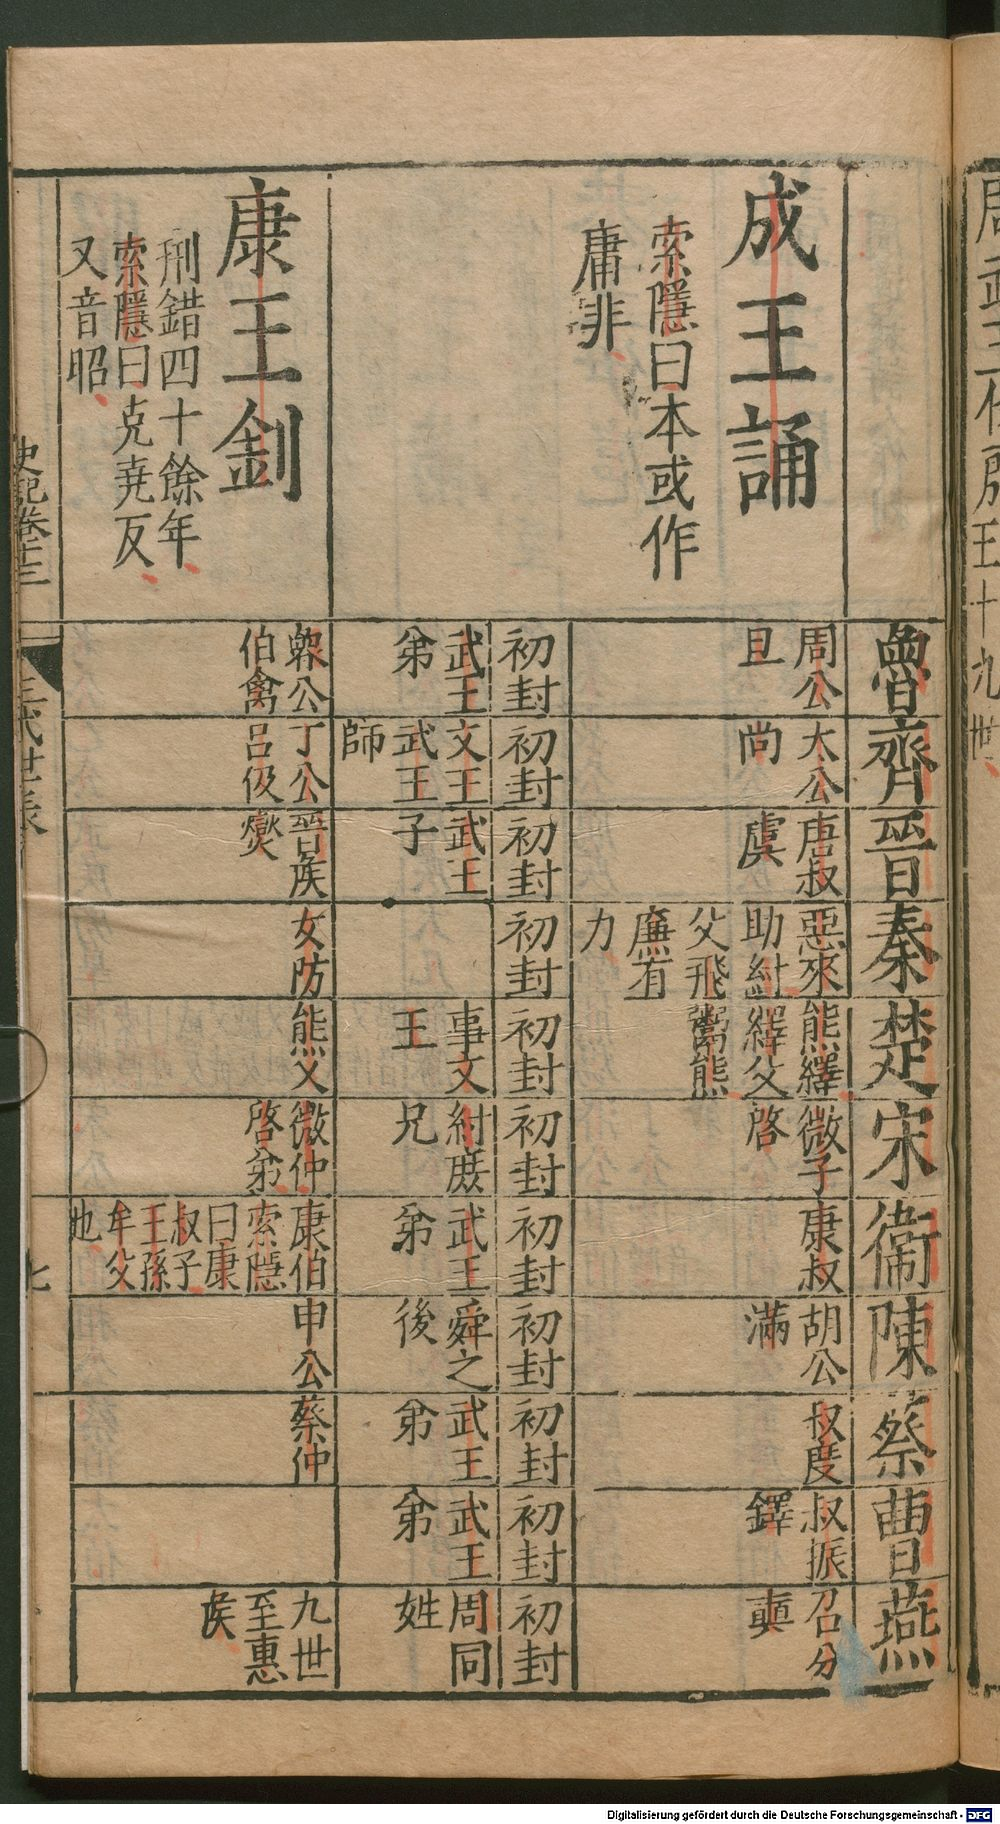 周武王代殷
王十九世
魯
齊
晉
秦
楚
宋
衞
陳
蔡
曹
燕
成王誦
索隱曰本或作
庸非
周公
旦
太公
尚
唐叔
虞
惡來
助紂
父飛
廉有
力
熊繹
繹父
鬻熊
微子
啓
康叔
胡公
滿
叔度
叔振
鐸
召公
奭
初封
初封
初封
初封
初封
初封
初封
初封
初封
初封
初封
武王
弟
文王
武王
師
武王
子
事文
王
紂庶
兄
武王
弟
舜之
後
武王
弟
武王
弟
周同
姓
康王釗
刑錯四十餘年
索隱曰克堯反
又音昭
魯公
伯禽
丁公
呂伋
晉侯
燮
女防
熊乂
微仲
啓弟
康伯
索隱
曰康
叔子
王孫
牟父
也
申公
蔡仲
九世
至惠
侯
史記卷十三
三代世表
七
Digitalisierung gefördert durch die Deutsche Forschungsgemeinschaft - DFG